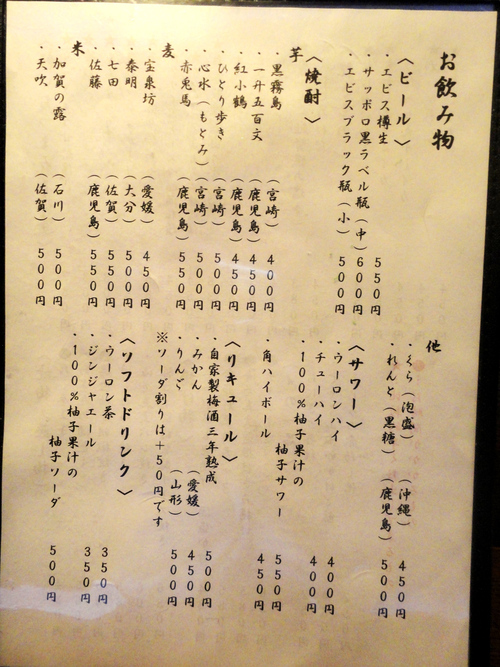 お飲み物
〈ビール〉
・エビス樽生 550円
・サッポロ黒ラベル瓶（中）600円
・エビスブラック瓶（小）500円
〈焼酎〉
芋
・黒霧島（宮崎）400円
・一升五百文（鹿児島）450円
・紅小鶴（鹿児島）450円
・ひとり歩き（宮崎）500円
・心水（もとみ）（宮崎）500円
・赤兎馬（鹿児島）550円
麦
・宝泉坊（愛媛）450円
・泰明（大分）500円
・七田（佐賀）550円
・佐藤（鹿児島）550円
米
・加賀の露（石川）500円
・天吹（佐賀）500円
他
・くら（泡盛）（沖縄）450円
・れんと（黒糖）（鹿児島）500円
〈サワー〉
・ウーロンハイ 400円
・チューハイ 400円
・100％柚子果汁の
柚子サワー 550円
・角ハイボール 450円
〈リキュール〉
・自家製梅酒三年熟成 500円
・みかん（愛媛）450円
・りんご（山形）500円
※ソーダ割りは＋50円です
〈ソフトドリンク〉
・ウーロン茶 350円
・ジンジャエール 350円
・100％柚子果汁の
柚子ソーダ 500円